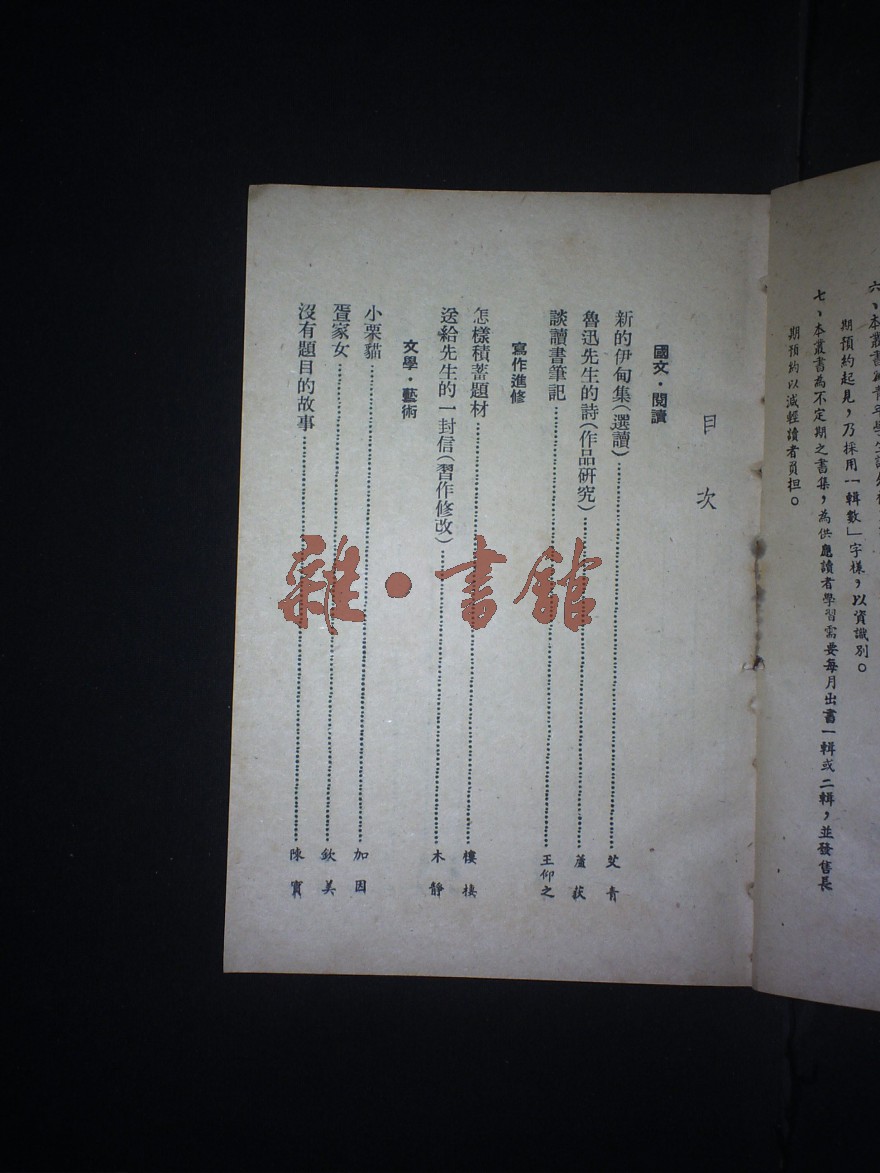 六、本叢書為青年學生課外
期預約起見，乃採用「輯數」字樣，以資識別。
七、本叢書為不定期之書集，為供應讀者學習需要每月出書一輯或二輯，並發售長
期預約以減輕讀者負担。
目次
國文·閱讀
新的伊甸集(選讀)……艾青
魯迅先生的詩(作品研究)……蘆荻
談讀書筆記……王仰之
寫作進修
怎樣積蓄題材……樓棲
送給先生的一封信(習作修改)……木靜
文學·藝術
小栗貓……加因
疍家女……欽美
沒有題目的故事……陳實
雜·書館